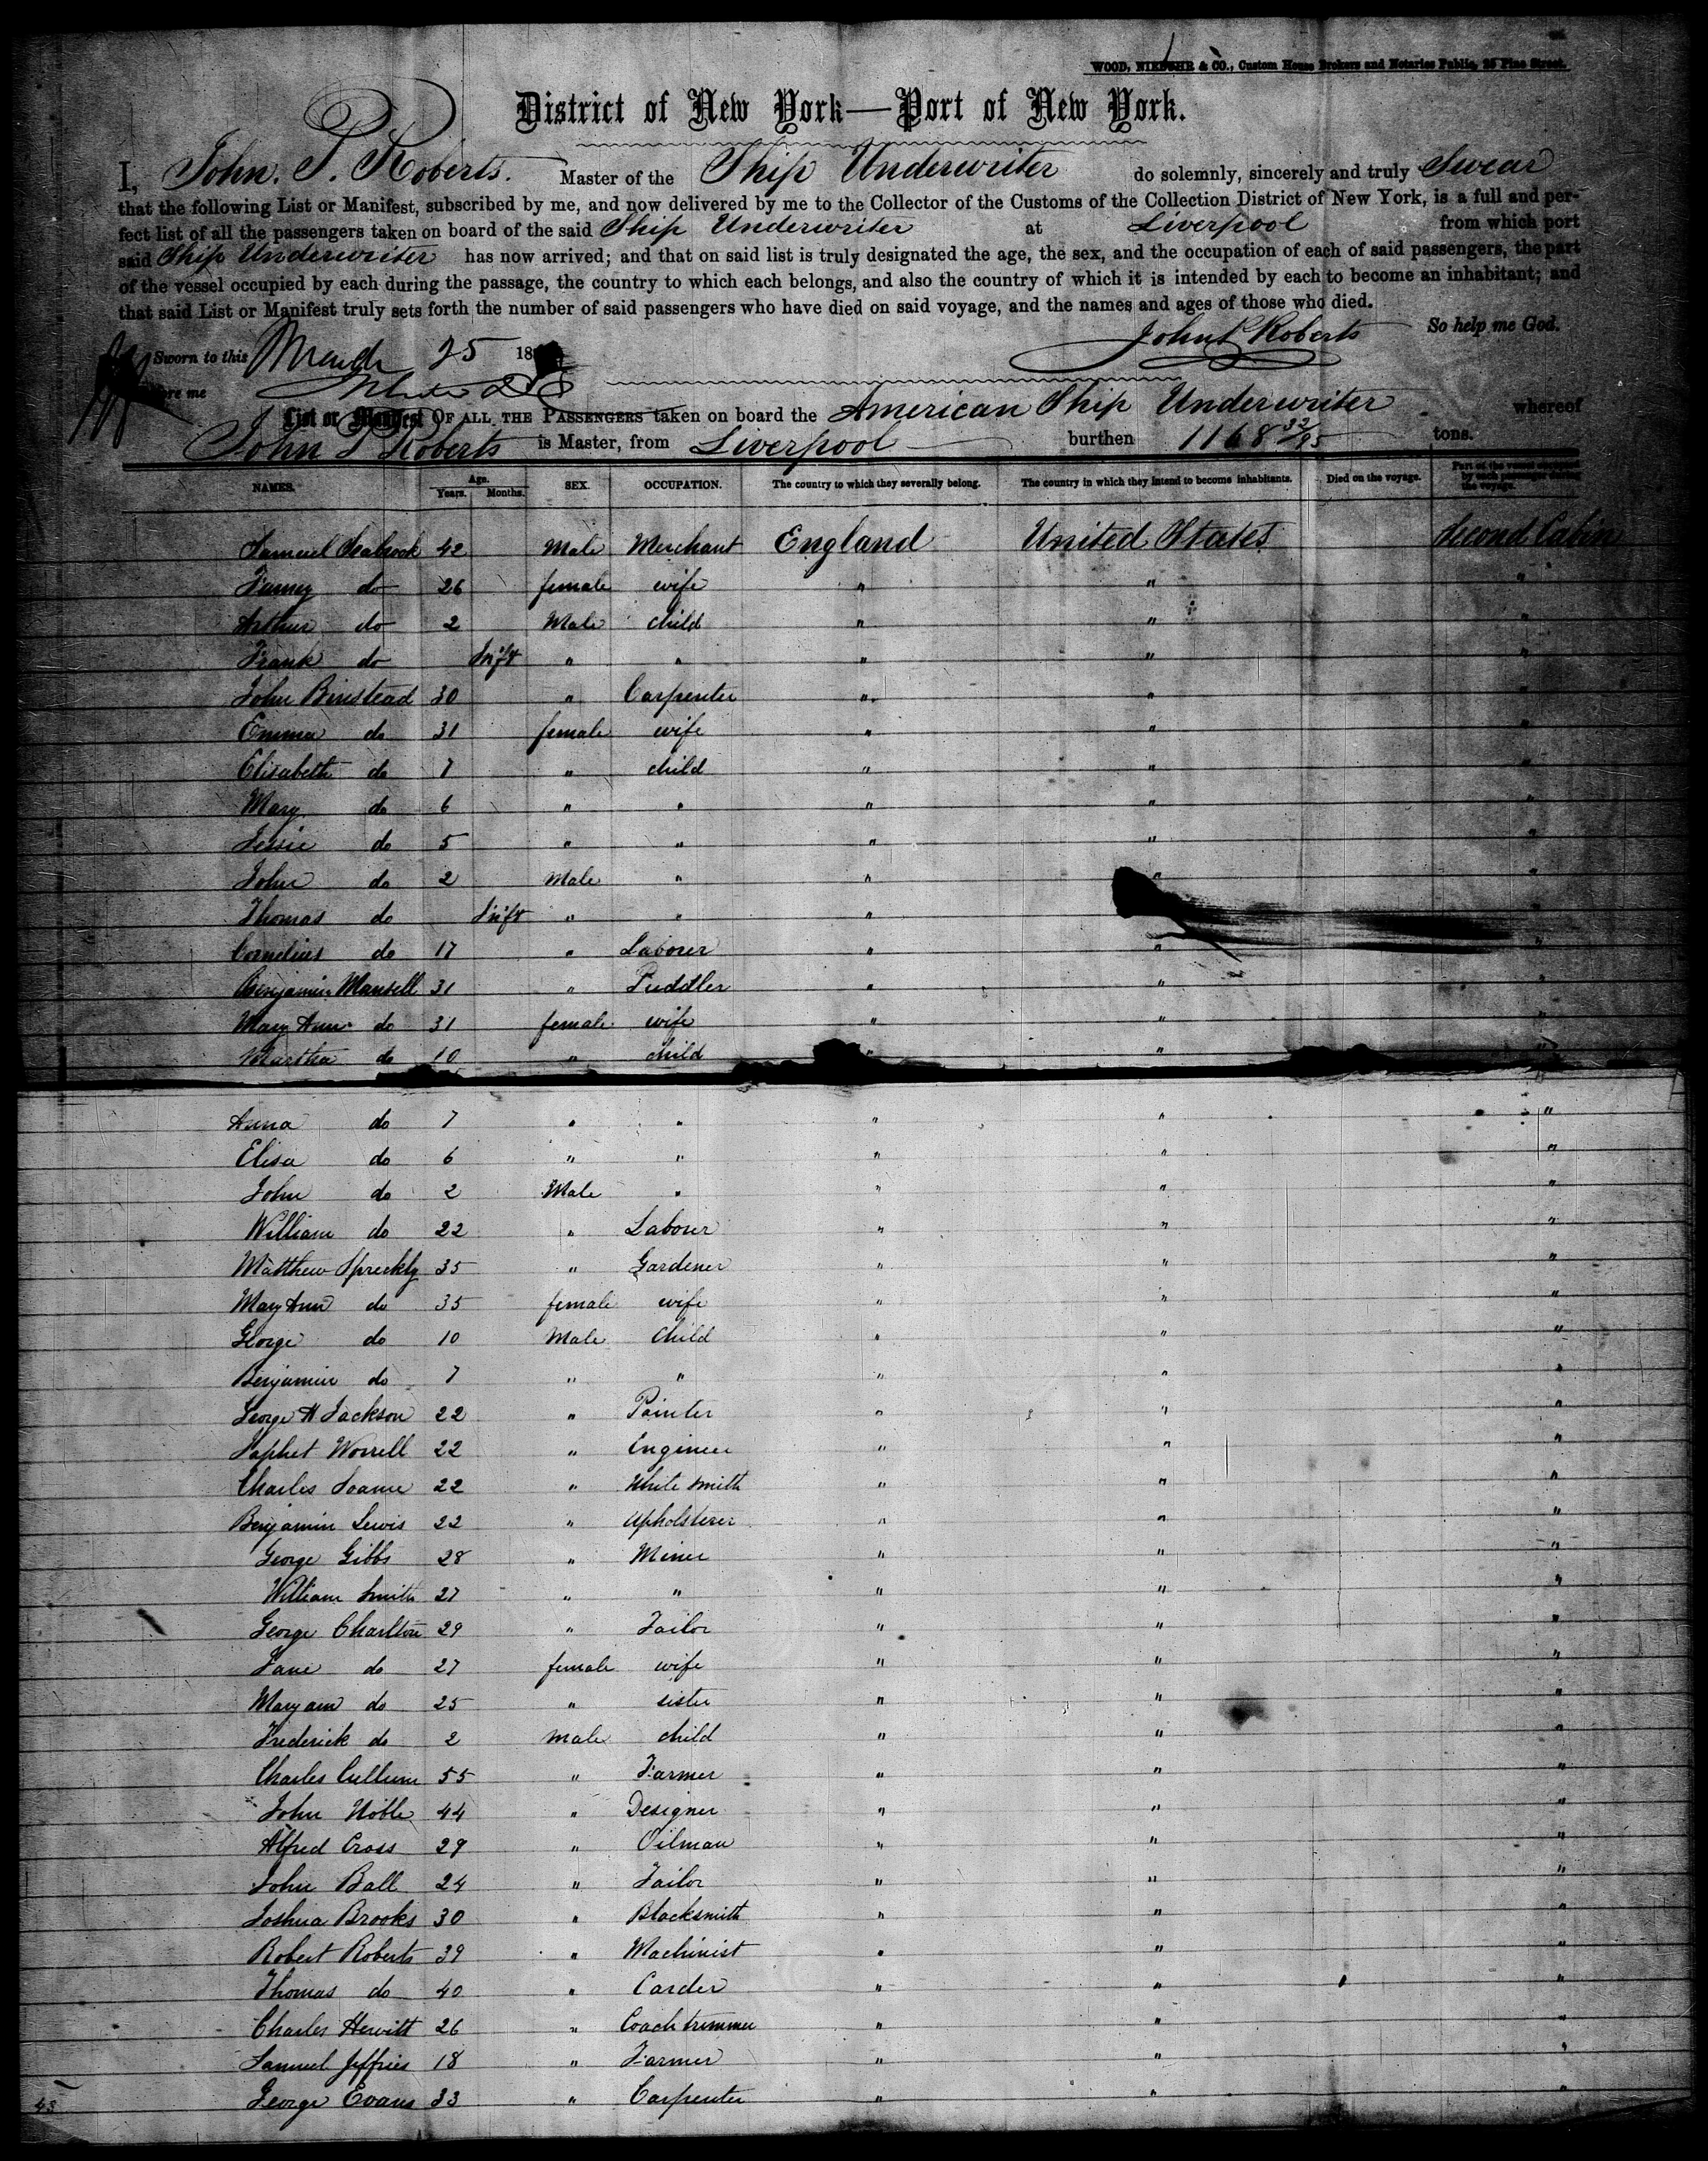 WOOD, NIEBUHR & CO., Custom House Brokers and Notaries Public, 26 Pine Street.
District of New York—Port of New York.
I, John. P. Roberts. Master of the Ship Underwriter do solemnly, sincerely and truly Swear
that the following List or Manifest, subscribed by me, and now delivered by me to the Collector of the Customs of the Collection District of New York, is a full and per-
fect list of all the passengers taken on board of the said Ship Underwriter at Liverpool from which port
said Ship Underwriter has now arrived; and that on said list is truly designated the age, the sex, and the occupation of each of said passengers, the part
of the vessel occupied by each during the passage, the country to which each belongs, and also the country of which it is intended by each to become an inhabitant; and
that said List or Manifest truly sets forth the number of said passengers who have died on said voyage, and the names and ages of those who died.
John P Roberts So help me God.
Sworn to this March 25 18
before me
List or Manifest OF ALL THE PASSENGERS taken on board the American Ship Underwriter whereof
John P Roberts is Master, from Liverpool burthen 1168 32/95 tons.
NAMES. Age. Years. Months. SEX. OCCUPATION. The country to which they severally belong. The country in which they intend to become inhabitants. Died on the voyage. Part of the vessel occupied by each passenger during the voyage.
Samuel Seabrook 42 Male Merchant England United States Second Cabin
Fanny do 26 female wife " " "
Arthur do 2 Male child " " "
Frank do Inft " " " " "
John Binstead 30 " Carpenter " " "
Emma do 31 female wife " " "
Elisabeth do 7 " child " " "
Mary do 6 " " " " "
Jessie do 5 " " " " "
John do 2 Male " " " "
Thomas do Inft " " " " "
Cornelius do 17 " Laborer " " "
Benjamin Mansell 31 " Puddler " " "
Mary Ann do 31 female wife " " "
Martha do 10 " child " " "
Anna do 7 " " " " "
Elisa do 6 " " " " "
John do 2 Male " " " "
William do 22 " Laborer " " "
Matthew Spreckly 35 " Gardener " " "
Mary Ann do 35 female wife " " "
George do 10 Male Child " " "
Benjamin do 7 " " " " "
George H Jackson 22 " Painter " " "
Japhet Worrell 22 " Engineer " " "
Charles Soame 22 " White smith " " "
Benjamin Lewis 22 " Upholsterer " " "
George Gibbs 28 " Miner " " "
William Smith 27 " " " " "
George Charlton 29 " Tailor " " "
Jane do 27 female wife " " "
Mary ann do 25 " sister " " "
Frederick do 2 male child " " "
Charles Cullum 55 " Farmer " " "
John Noble 44 " Designer " " "
Alfred Cross 29 " Oilman " " "
John Ball 24 " Tailor " " "
Joshua Brooks 30 " Blacksmith " " "
Robert Roberts 39 " Machinist " " "
Thomas do 40 " Carder " " "
Charles Hewitt 26 " Coach trimmer " " "
Samuel Jeffries 18 " Farmer " " "
George Evans 33 " Carpenter " " "
43